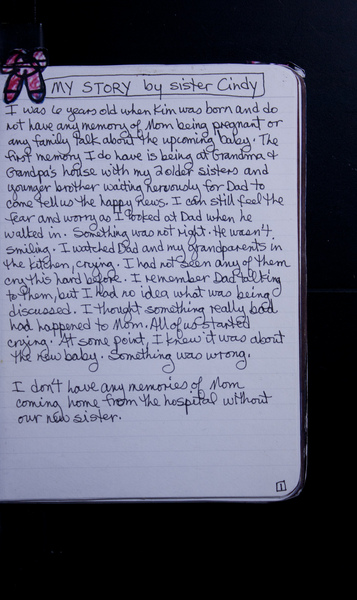 MY STORY by sister Cindy
I was 6 years old when Kim was born and do
not have any memory of Mom being pregnant or
any family talk about the upcoming baby. The
first memory I do have is being at Grandma &
Grandpa's house with my 2 older sisters and
younger brother waiting nervously for Dad to
come tell us the happy news. I can still feel the
fear and worry as I looked at Dad when he
walked in. Something was not right. He wasn't
smiling. I watched Dad and my grandparents in
the kitchen, crying. I had not seen any of them
cry this hard before. I remember Dad talking
to them, but I had no idea what was being
discussed. I thought something really bad
had happened to Mom. All of us started
crying. At some point, I knew it was about
the new baby. Something was wrong.
I don't have any memories of Mom
coming home from the hospital without
our new sister.
1